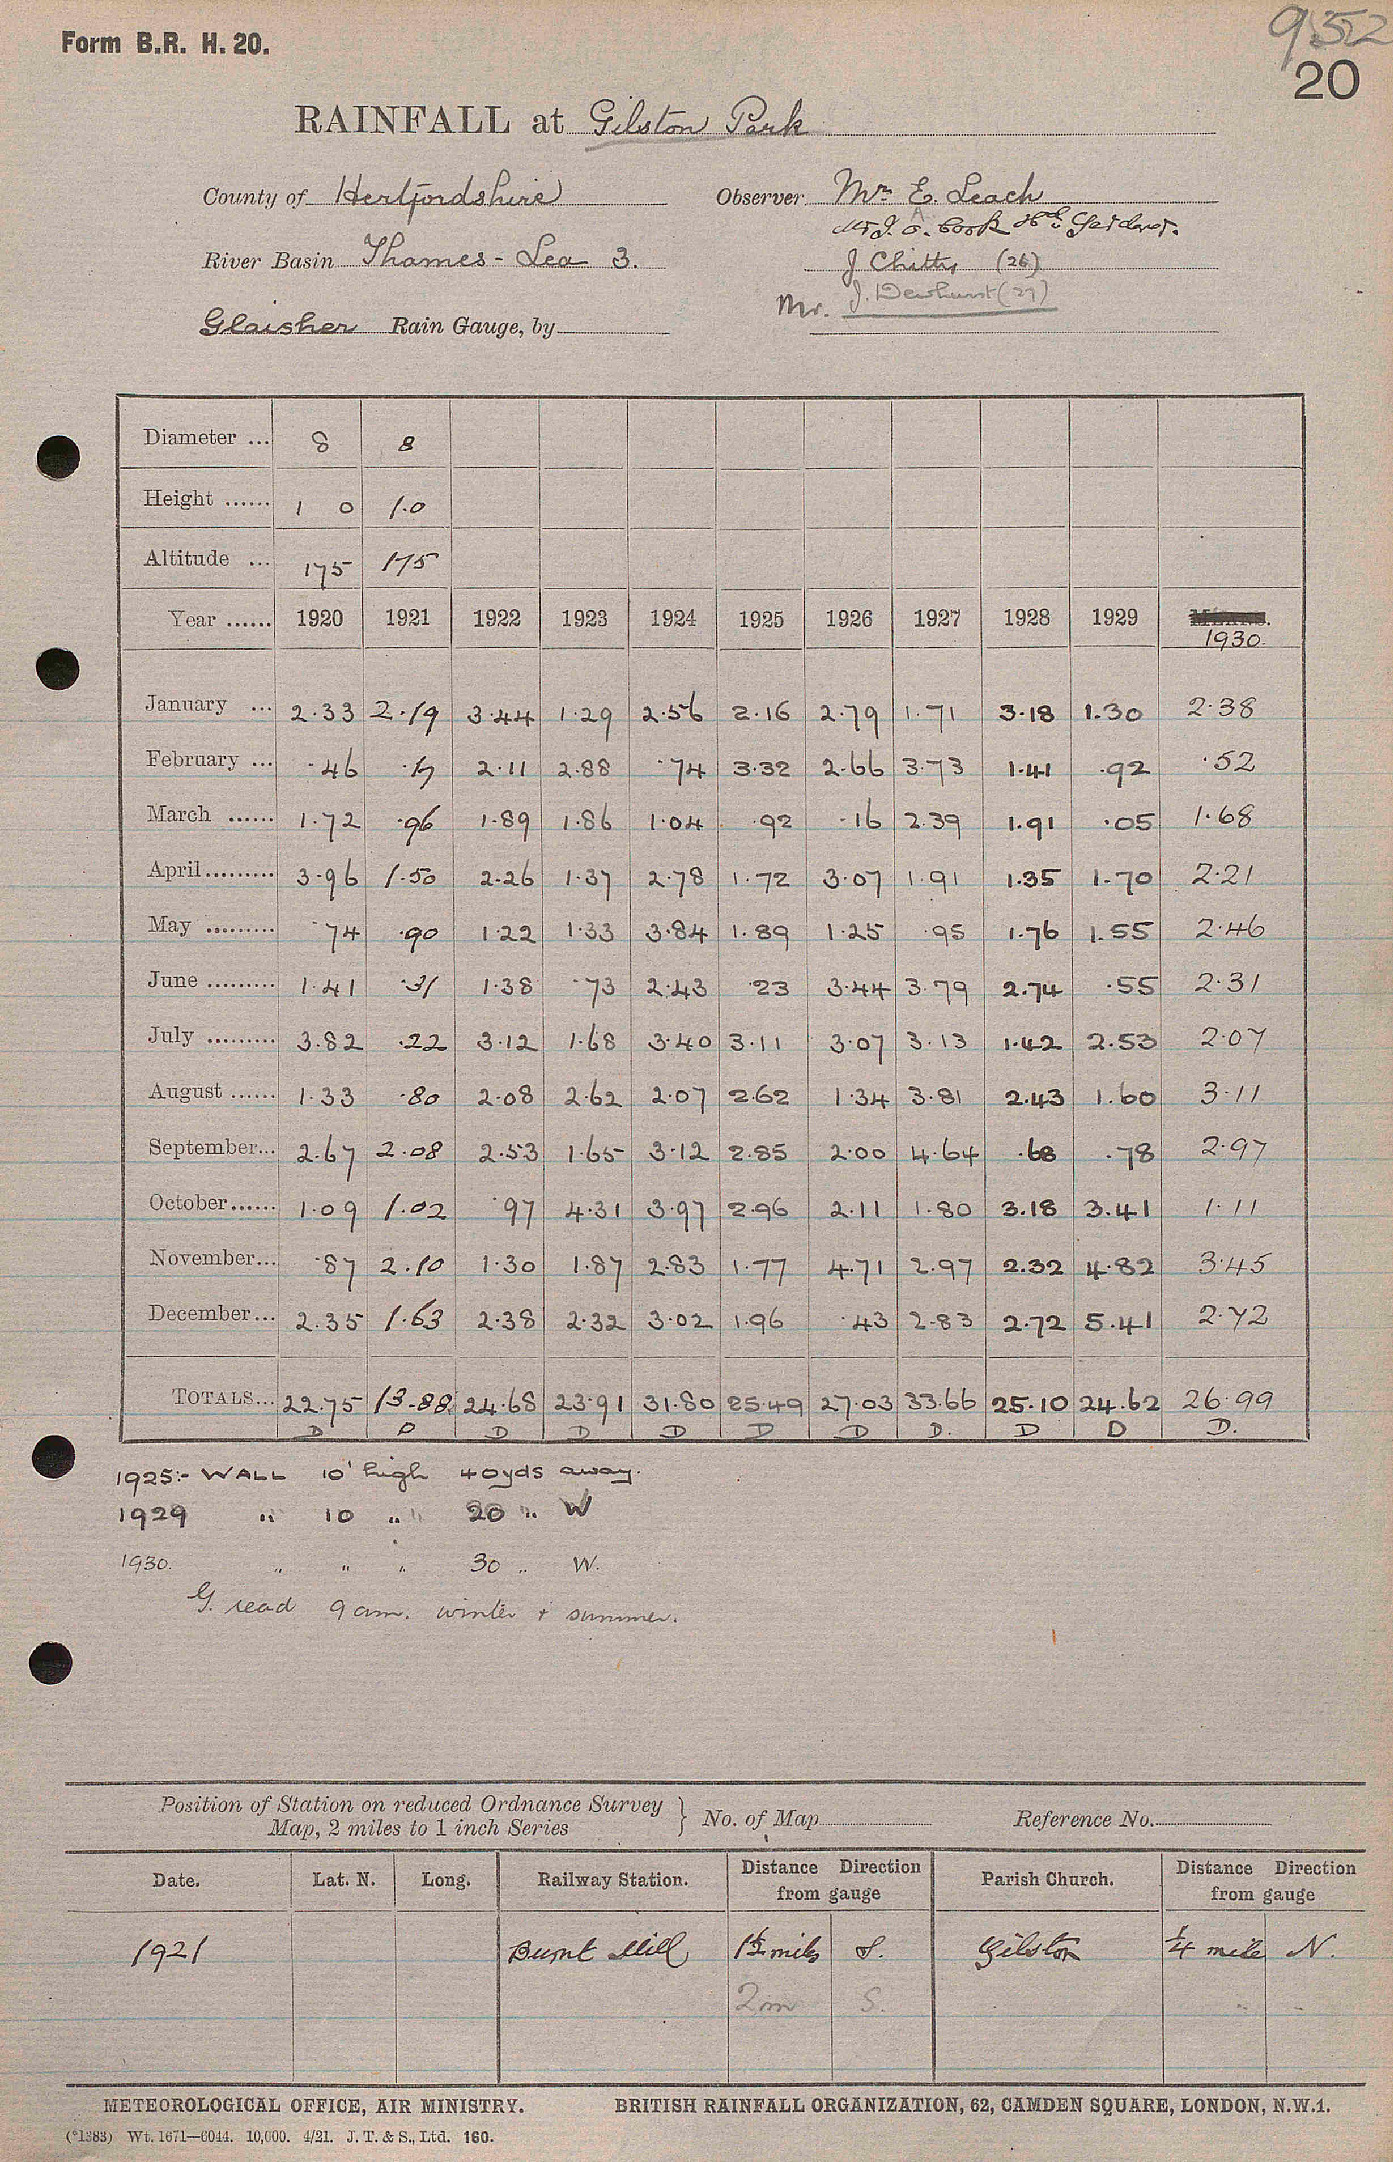 Form B.R. H. 20.
952
20
RAINFALL at Gilston Park
County of Hertfordshire
Observer Mr. E. Leach
Mr J. A. Cook Hd. Gardener.
River Basin Thames - Lea 3.
J Chitty (26)
Mr. J. Dewhurst (27)
Glaisher Rain Gauge, by
Diameter ... 8 8
Height ...... 1 0 1.0
Altitude ... 175 175
Year ...... 1920 1921 1922 1923 1924 1925 1926 1927 1928 1929 1930.
January ... 2.33 2.19 3.44 1.29 2.56 2.16 2.79 1.71 3.18 1.30 2.38
February ... .46 .17 2.11 2.88 .74 3.32 2.66 3.73 1.41 .92 .52
March ...... 1.72 .96 1.89 1.86 1.04 .92 .16 2.39 1.91 .05 1.68
April......... 3.96 1.50 2.26 1.37 2.78 1.72 3.07 1.91 1.35 1.70 2.21
May ......... .74 .90 1.22 1.33 3.84 1.89 1.25 .95 1.76 1.55 2.46
June ......... 1.41 .31 1.38 .73 2.43 .23 3.44 3.79 2.74 .55 2.31
July ......... 3.82 .22 3.12 1.68 3.40 3.11 3.07 3.13 1.42 2.53 2.07
August ...... 1.33 .80 2.08 2.62 2.07 2.62 1.34 3.81 2.43 1.60 3.11
September... 2.67 2.08 2.53 1.65 3.12 2.85 2.00 4.64 .68 .78 2.97
October...... 1.09 1.02 .97 4.31 3.97 2.96 2.11 1.80 3.18 3.41 1.11
November... .87 2.10 1.30 1.87 2.83 1.77 4.71 2.97 2.32 4.82 3.45
December... 2.35 1.63 2.38 2.32 3.02 1.96 .43 2.83 2.72 5.41 2.72
TOTALS... 22.75 13.88 24.68 23.91 31.80 25.49 27.03 33.66 25.10 24.62 26.99
D D D D D D D D. D D D.
1925:- WALL 10' high 40yds away.
1929 " 10 " 20 " W
1930. " " " 30 " W.
G. read 9 am. winter + summer.
Position of Station on reduced Ordnance Survey
Map, 2 miles to 1 inch Series } No. of Map Reference No.
Date. Lat. N. Long. Railway Station. Distance Direction from gauge Parish Church. Distance Direction from gauge
1921 Burnt Mill 1½ miles S. Gilston ¼ mile N.
2m S. " "
METEOROLOGICAL OFFICE, AIR MINISTRY. BRITISH RAINFALL ORGANIZATION, 62, CAMDEN SQUARE, LONDON, N.W.1.
(*1383) Wt. 1671—6044. 10,000. 4/21. J. T. & S., Ltd. 160.